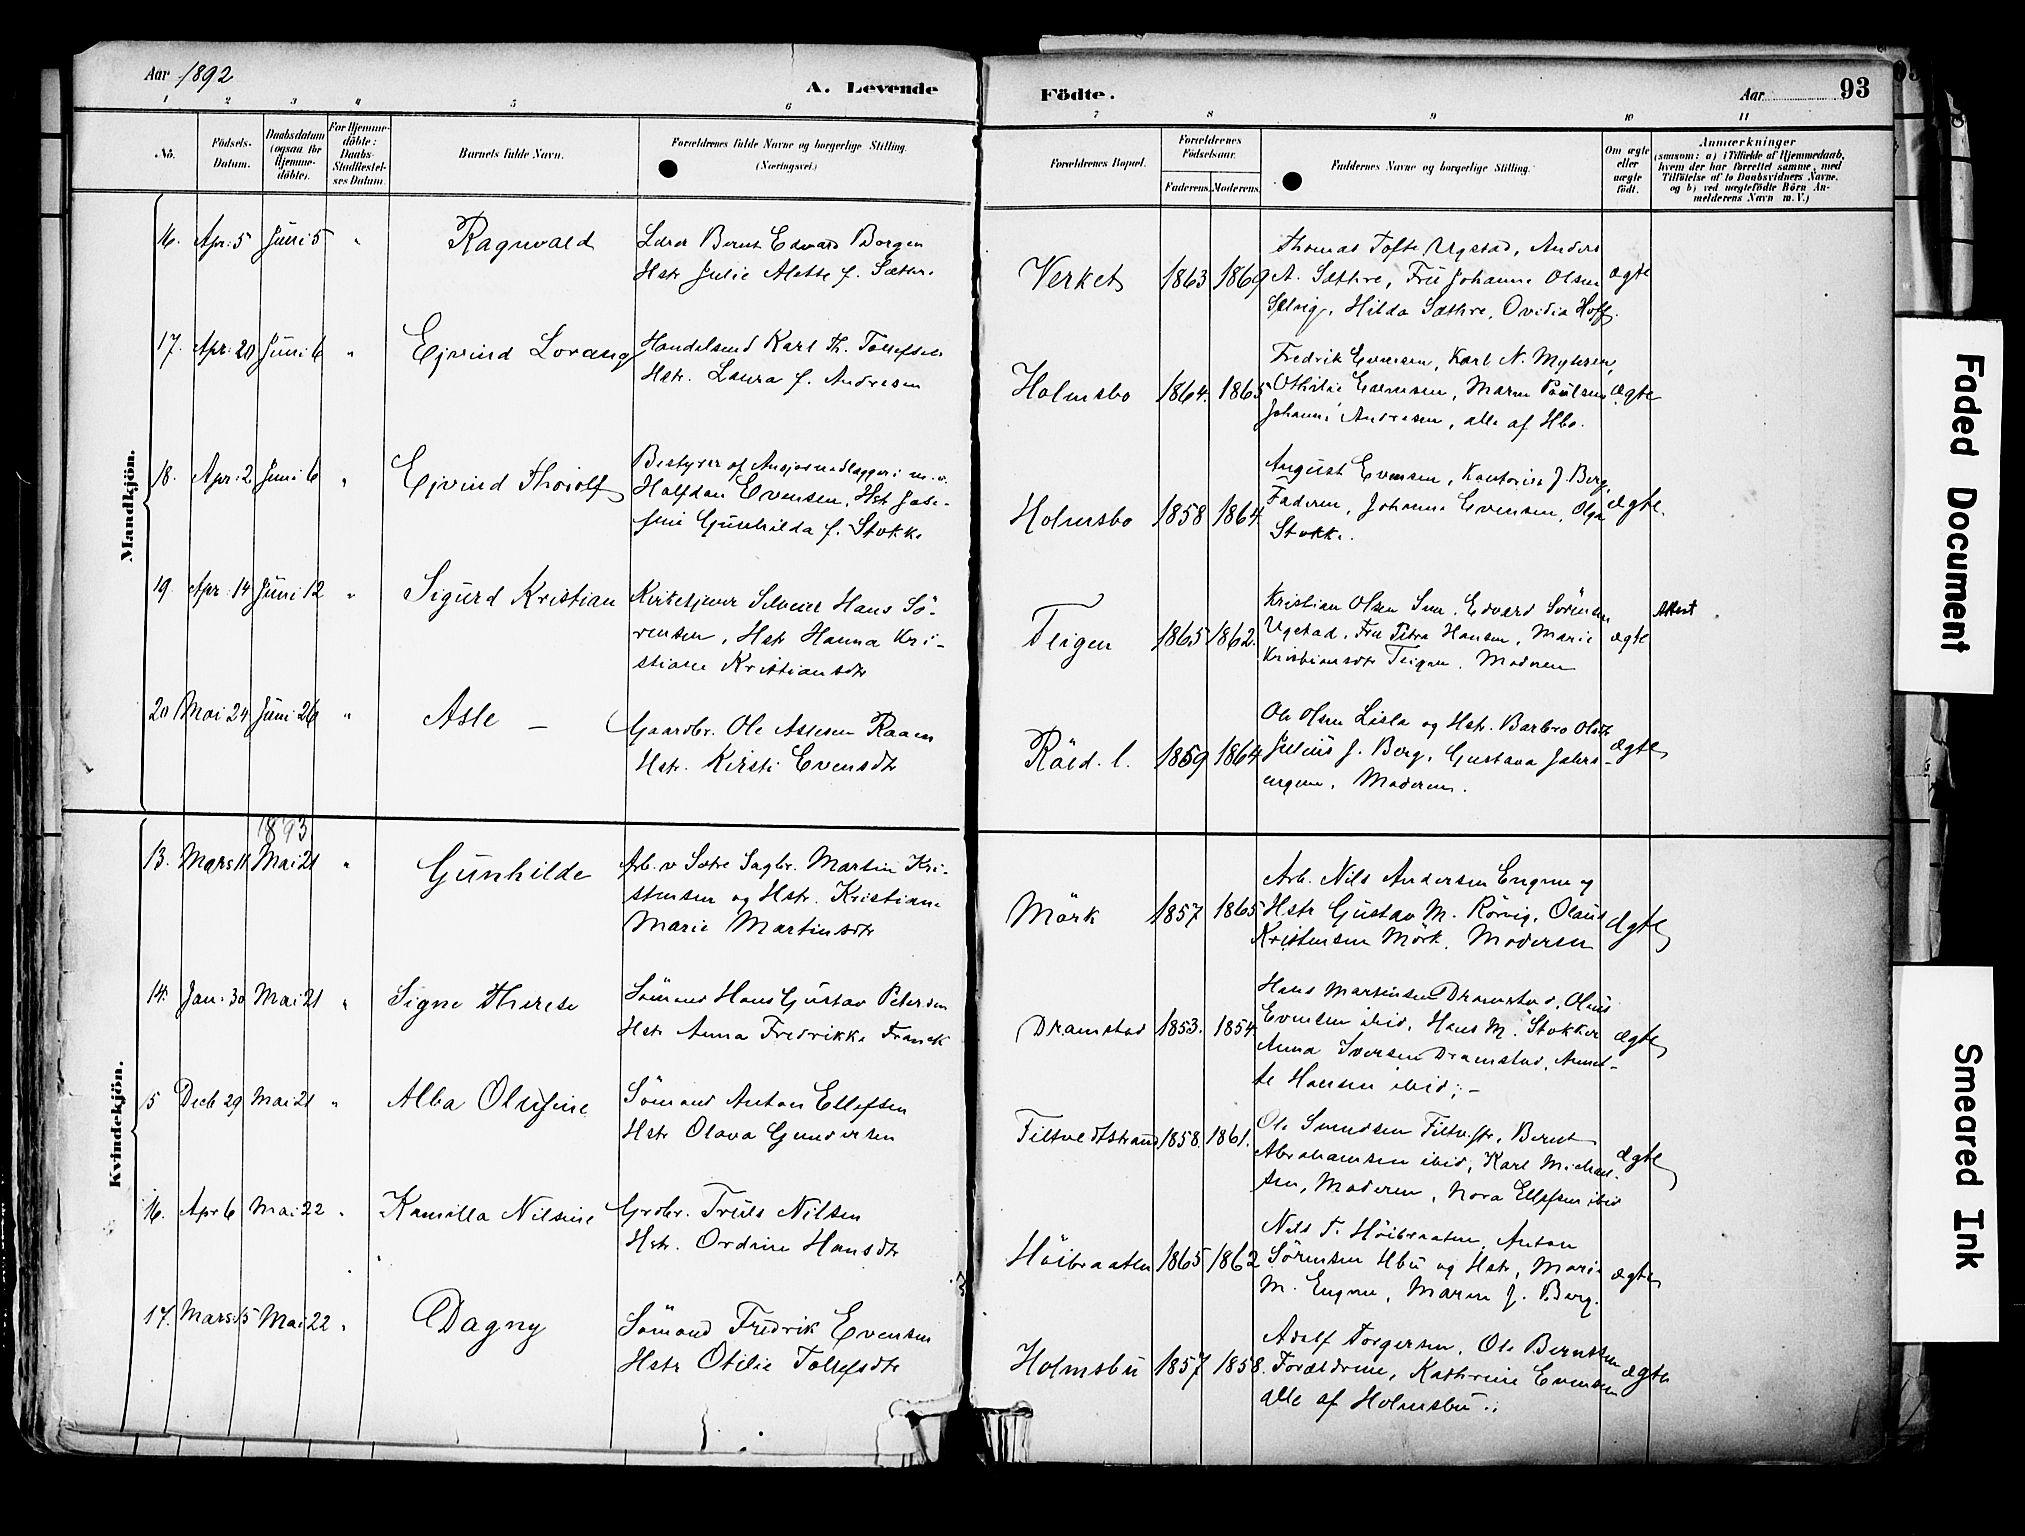 Aar 1892
A. Levende
Födte.
Aar 93
1 2 3 4 5 6 7 8 9 10 11
No.
Födsels-Datum.
Daabsdatum (ogsaa for Hjemme-döbte).
For Hjemme-döbte: Daabs-Stadfæstelses Datum.
Barnets fulde Navn.
Forældrenes fulde Navne og borgerlige Stilling. (Næringsvei.)
Forældrenes Bopæl.
Forældrenes Födselsaar.
Faderens. Moderens.
Faddernes Navne og borgerlige Stilling.
Om ægte eller uægte födt.
Anmærkninger
(saasom: a) i Tilfælde af Hjemmedaab, hvem der har forrettet samme, med Tilföielse af to Daabsvidners Navne, og b) ved uægtefödte Börn Anmelderens Navn m. V.)
Mandkjön.
16. Apr: 5 Juni 5 " Ragnvald
Lærer Bernt Edvard Borgen
Hstr Julie Alette f. Sæthre
Verket 1863 1869
Thomas Tofte Ugstad, Anders
A. Sæthre, Fru Johanne Olsen
Selvig, Hilda Sæthre, Ovidia Hoff.
ægte
17. Apr: 20 Juni 6 " Ejvind Lorang
Handelsmd Karl Th. Tollefsen
Hstr. Laura f. Andresen
Holmsbo 1864. 1865
Fredrik Evensen, Karl N. Myhren,
Othilie Evensen, Maren Paulsen
Johanne Andresen, alle af Hbo.
ægte
18. Apr: 2 Juni 6 " Ejvind Thorolf
Bestyrer af Ansjosnedlæggeri m. v.
Halfdan Evensen, Hst Jose-
fine Gunhilda f. Stokke
Holmsbo 1858 1864.
August Evensen, Kontorist J. Berg,
Faderen, Johanne Evensen, Olga
Stokke.
ægte.
19. Apr: 14 Juni 12 " Sigurd Kristian
Kirketjener Selveier Hans Sö-
rensen, Hstr Hanna Kri-
stiane Kristiansdtr
Teigen 1865 1862.
Kristian Olsen, Edvard Sörensen
Ugstad, Fru Petra Hansen, Marie
Kristiansdtr Teigen, Moderen
ægte
Attest
20 Mai 24 Juni 26 " Asle —
Gaardbr. Ole Aslesen Raaen
Hstr. Kirsti Evensdtr
Röed. l. 1859 1864
Ole Olsen Lisla og Hstr. Barbro Olsdtr
Julius J. Berg, Gustava
Moderen.
ægte
Kvindekjön.
1893
13. Mars 11 Mai 21 " Gunhilde
Arb. v Sætre Sagbr. Martin Kri-
stensen og Hstr. Kristiane
Marie Martinsdtr
Mörk 1857 1865
Arb. Nils Andersen Engene og
Hstr Gustav M. Rörvig, Olaus
Kristensen Mörk, Moderen
ægte
14. Jan: 30 Mai 21 " Signe Therese
Sömand Hans Gustav Petersen
Hstr Anna Fredrikke Franck
Dramstad 1853. 1854
Hans Martinsen Dramstad, Olaus
Evensen ibid, Hans M. Stokker
Anna Iversen Dramstad, Annet-
te Hansen ibid; —
ægte
15 Decb 29 Mai 21 " Alba Olufine
Sömand Anton Ellefsen
Hstr Olava Gundersen
Filtvedtstrand 1858. 1861.
Ole Svendsen Filtv.str., Bernt
Abrahamsen ibid, Karl Michael-
sen, Moderen, Nora Ellefsen ibid
ægte
16. Apr 6 Mai 22 " Kamilla Nilsine
Grdbr. Truls Nilsen
Hstr. Ordine Hansdtr
Höibraaten 1865 1862
Nils T. Höibraaten, Anton
Sörensen Hbu og Hstr, Marie
M. Engene, Maren J. Berg.
ægte
17. Mars 15 Mai 22 " Dagny
Sömand Fredrik Evensen
Hstr Otilie Tollefsdtr
Holmsbu 1857 1858.
Adolf Torgersen, Ole Berntsen
Forældrene, Kathrine Evensen
alle af Holmsbu.
ægte
Faded Document
Smeared Ink